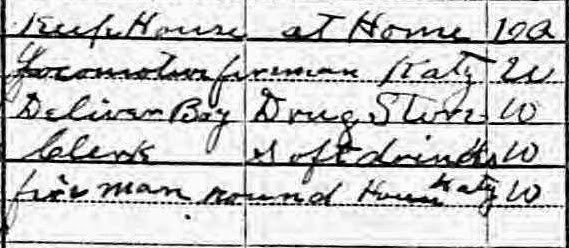 Keep House at Home OA
Locomotive fireman Katy W
Deliver Boy Drug Store W
Clerk Soft drinks W
fire man round House Katy W